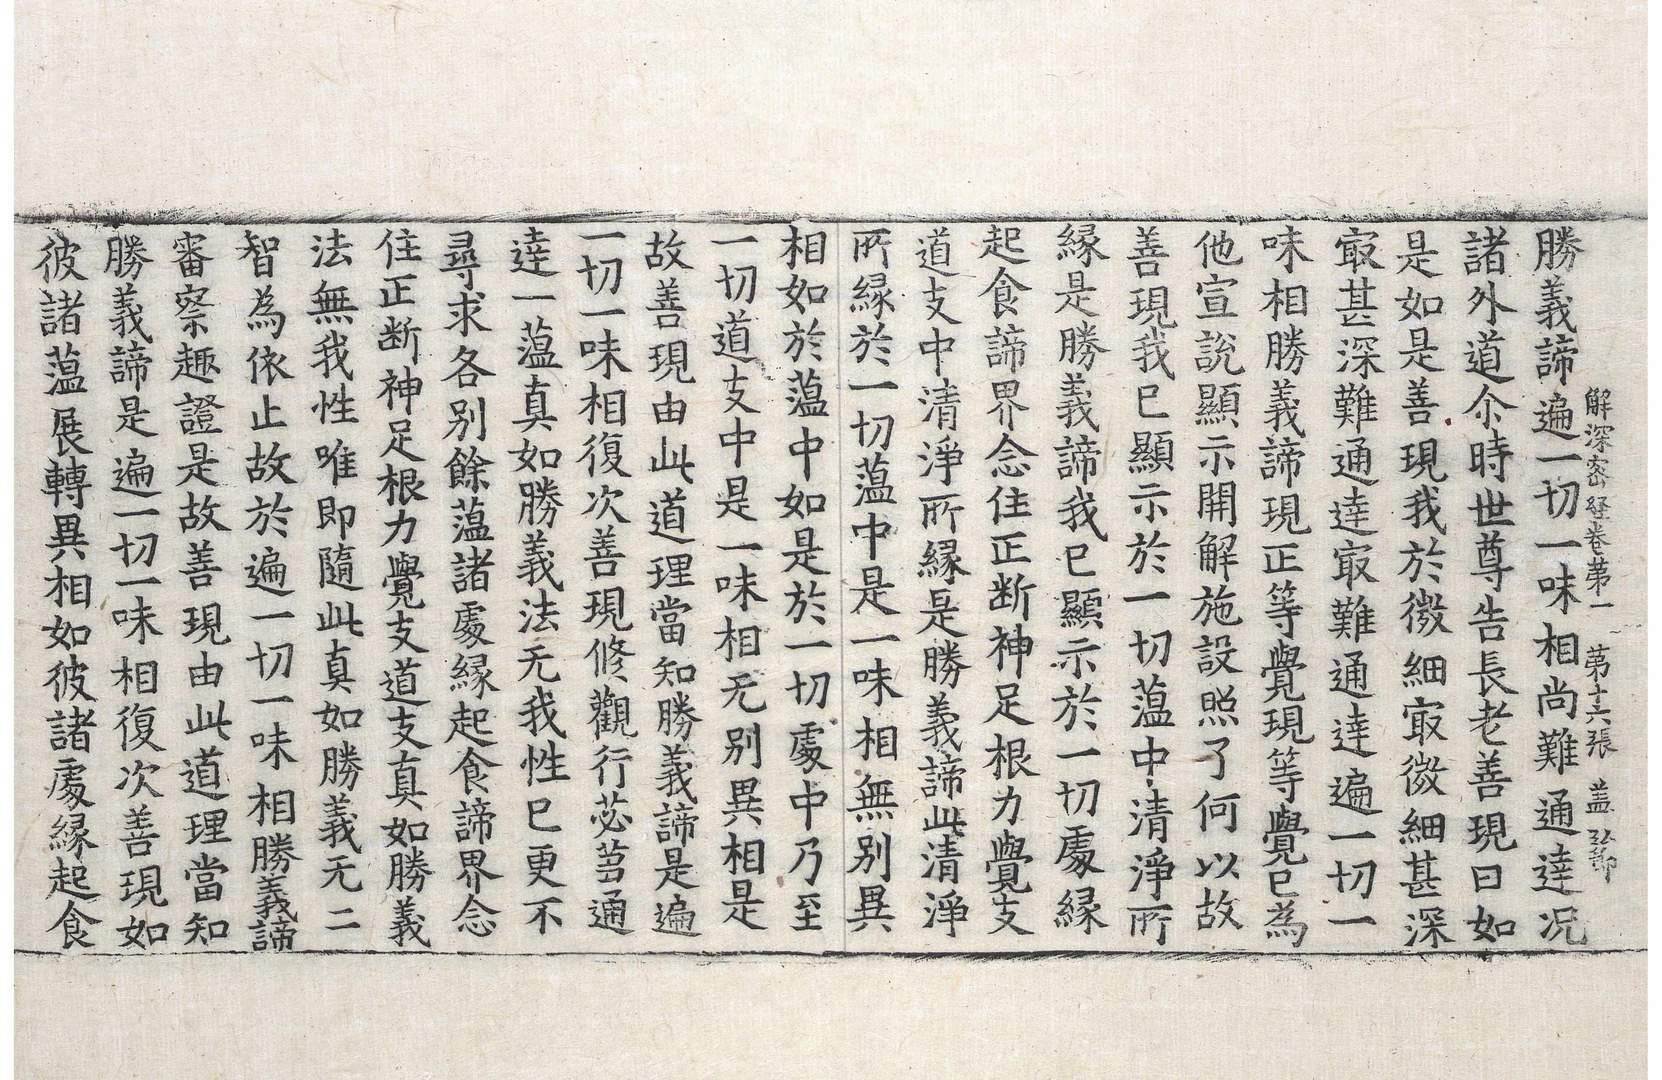 解深密経卷第一 第十六張 盖
勝義諦遍一切一味相尚難通達况
諸外道尒時世尊告長老善現曰如
是如是善現我於微細㝡微細甚深
㝡甚深難通達㝡難通達遍一切一
味相勝義諦現正等覺現等覺已為
他宣說顯示開解施設照了何以故
善現我已顯示於一切薀中清淨所
緣是勝義諦我已顯示於一切處緣
起食諦界念住正断神足根力覺支
道支中清淨所緣是勝義諦此清淨
所緣於一切薀中是一味相無別異
相如於薀中如是於一切處中乃至
一切道支中是一味相无別異相是
故善現由此道理當知勝義諦是遍
一切一味相復次善現修觀行苾芻通
達一薀真如勝義法无我性已更不
尋求各別餘薀諸處緣起食諦界念
住正断神足根力覺支道支真如勝義
法無我性唯即隨此真如勝義无二
智為依止故於遍一切一味相勝義諦
審察趣證是故善現由此道理當知
勝義諦是遍一切一味相復次善現如
彼諸薀展轉異相如彼諸處緣起食